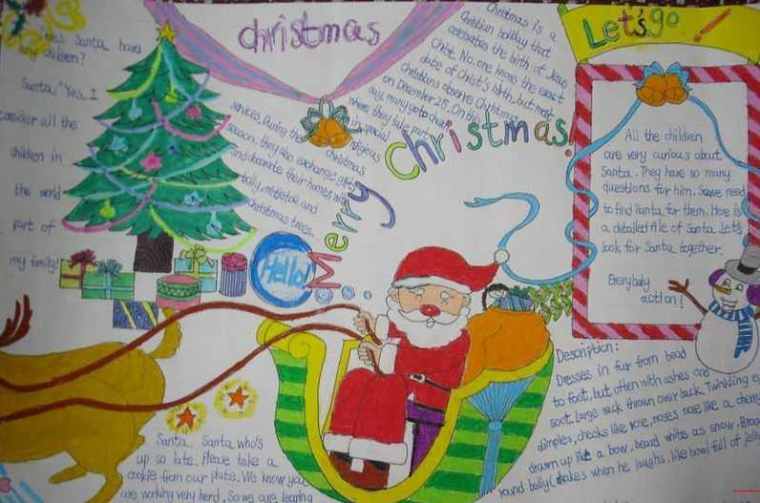 christmas
Let's go!
Christmas is a
christian holiday that
celebrates the birth of Jesus
Christ. No one know the exact
date of Christ's birth, but most
christians observe Christmas
on December 25. On this
day, many go to church
where they take part
in special
religious
services. During the
christmas
season, they also exchange gifts
and decorate their homes with
holly, mistletoe and
christmas trees.
Santa have
children?
Santa: "Yes, I
consider all the
children in
the world
part of
my family!
Hello!
Merry Christmas!
All the children
are very curious about
Santa. They have so many
questions for him. Some need
to find Santa for them. Here is
a detailed file of Santa. Let's
look for Santa together.
Everybody
action!
Description:
Dresses in fur from head
to foot, but often with ashes and
soot. Large sack thrown over back. Twinkling
dimples, cheeks like rose, noses nose like a cherry
drawn up like a bow, beard white as snow. Broad
round belly (shakes when he laughs, like bowl full of jelly
Santa, Santa who's
up so late. Please take a
cookie from our plate. We know you
are working very hard. Some are